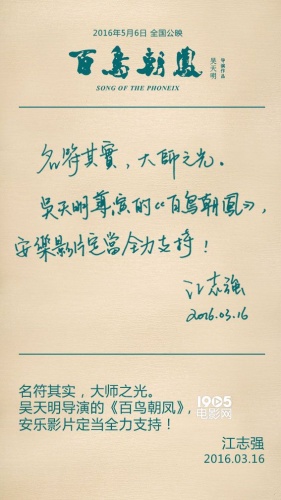 2016年5月6日 全国公映
百鸟朝鳳
吴天明
导演作品
SONG OF THE PHONEIX
名符其實，大師之光。
吴天明導演的《百鸟朝鳳》，
安樂影片定當全力支持！
江志強
2016.03.16
名符其实，大师之光。
吴天明导演的《百鸟朝凤》，
安乐影片定当全力支持！
1905
电影网
江志强
2016.03.16